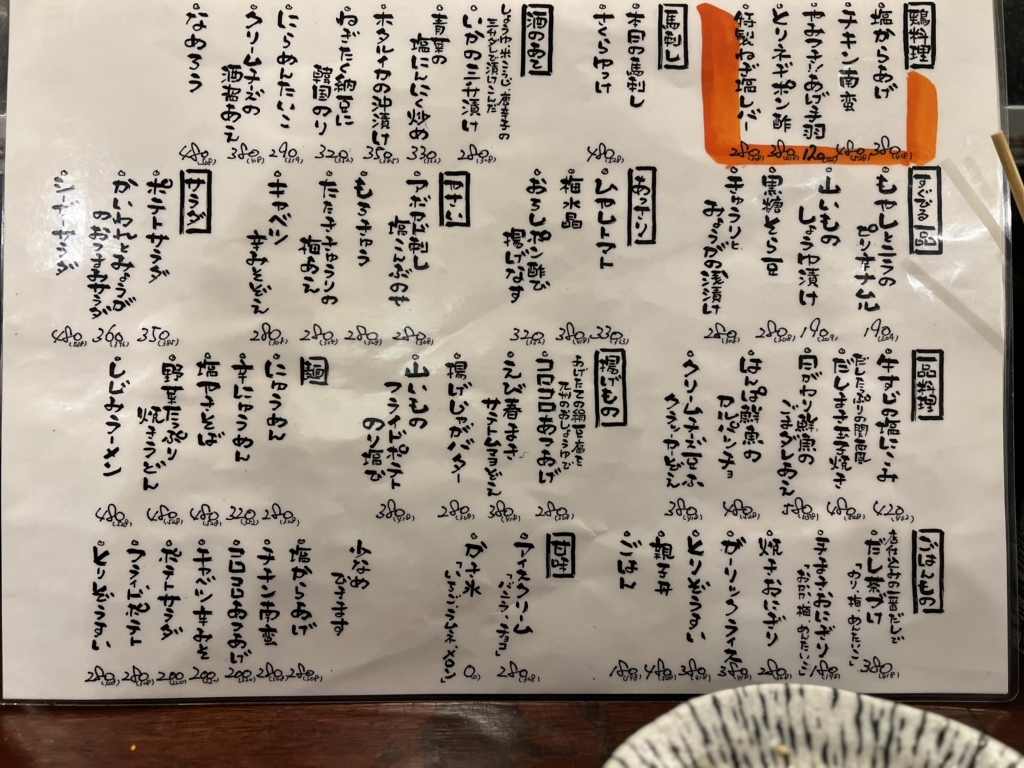 鶏料理
塩からあげ 380
チキン南蛮 480
やみつき!あげ手羽 120
とりネギポン酢 380
特製ねぎ塩レバー 280
馬刺し
本日の馬刺し
さくらゆっけ 480
酒のあて
しょうゆ・米こうじ・唐辛子の
三升だしで漬けこんだ
いかの三升漬け 280
青菜の
塩にんにく炒め 330
ホタルイカの沖漬け 350
ねぎだく納豆に
韓国のり 320
にらめんたいこ 290
クリームチーズの
酒盗あえ 380
なめろう 480
すぐでる1品
もやしと小ラの
ピリ辛ナムル 190
山いもの
しょうゆ漬け 190
黒糖そら豆 280
きゅうりと
みょうがの浅漬け 280
あっさーり
ひやしトマト 330
梅水晶 380
おろしポン酢で
揚げなす 320
ヤサイ
アボカド刺し
塩こんぶのせ 280
もろきゅう 280
たたききゅうりの
梅あえ 280
キャベツ
280
サラダ
ポテトサラダ 350
かいわれとみょうがの
おつまみサラダ 360
シーザーサラダ 480
一品料理
牛すじの塩にこみ 420
だしたっぷりの関西風
だしまき玉子焼き 480
白がセリ鮮魚の
ごまグレあえ 580
はんぱ鮮魚の
カルパッチョ 480
クリームチーズ豆ふ
クラッカーどえん 380
揚げもの
あげたての絹豆腐を
九州のおしょうゆで
カロカロあつあげ 280
えび春まき
380
揚げじゃがバター 280
山いもの
フライドポテト
のり塩がけ 380
麺
にゅうめん 280
辛にゅうめん 320
塩やきそば 480
野菜たっぷり
焼きうどん 480
しじみラーメン 480
ごはんもの
店仕込みの1番だしで
だし茶づけ
「のり・梅・めんたいこ」 380
ケおきおにぎり
「おか・梅・めんたいこ」 180
焼きおにぎり 280
ガーリックライス 380
とりぞうすい 380
親子丼 480
ごはん 180
甘味
アイスクリーム
「バニラ・チョコ」 280
かき氷
0
少なめ
塩からあげ 280
チキン南蛮 280
カロカロあつあげ 200
キャベツ 200
ポテトサラダ 200
フライドポテト 280
とりぞうすい 280